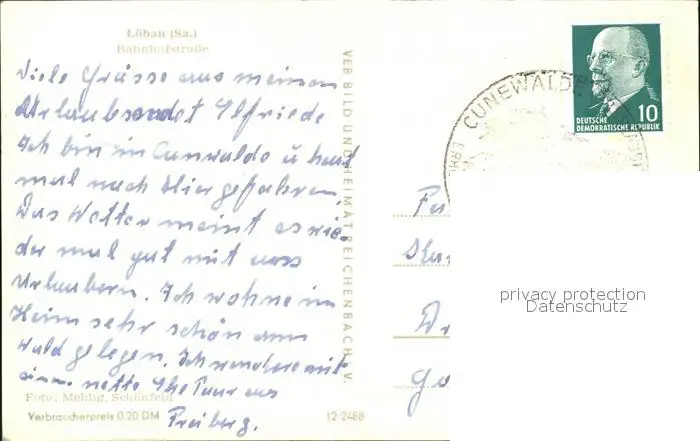 Löbau (Sa.)
Bahnhofstraße
Viele Grüsse aus meinem
Urlaubsordet Elfriede
Ich bin in Cunwalde u heut
mal nach hier gefahren.
Das Wetter meint es wie-
der mal gut mit uns
Urlaubern. Ich wohne im
Heim sehr schön am
Wald gelegen. Ich wandere mit
einem nette Ehe Paar aus
Freiberg.
Foto: Mehlig, Schönfeld
Verbraucherpreis 0,20 DM
12 2488
VEB BILD UND HEIMAT REICHENBACH i. V.
CUNEWALDE
10
DEUTSCHE
DEMOKRATISCHE REPUBLIK
privacy protection
Datenschutz